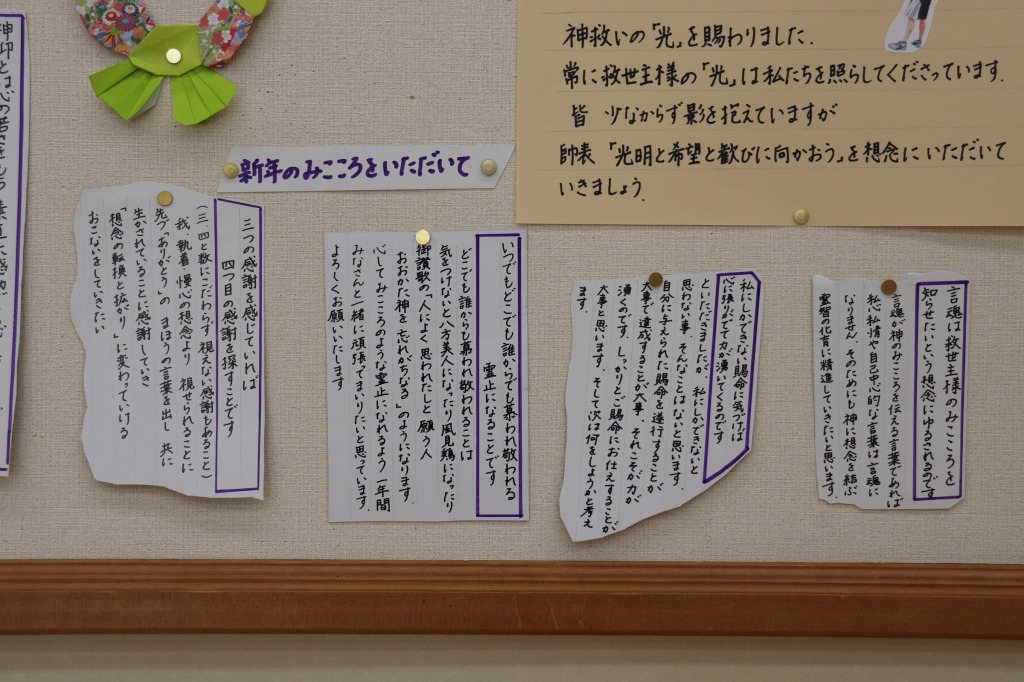 神救いの「光」を賜わりました.
常に救世主様の「光」は私たちを照らしてくださっています.
皆 少なからず影を抱えていますが
帥表「光明と希望と歓びに向かおう」を想念にいただいて
いきましょう.
新年のみこころをいただいて
言魂は救世主様のみこころを
知らせたいという想念にゆるされるのです
言魂が神のみこころを伝える言葉であれば
私心私情や自己中心的な言葉は言魂に
なりません。そのためにも神に想念を結ぶ
霊智の化育に精進していきたいと思います.
私にしかできない賜命に気づけば
心に張りがでて力が湧いてくるのです
といただきましたが、私にしかできないと
思わない事、そんなことはないと思います.
自分に与えられた賜命を遂行することが
大事で達成することが大事、それこそが力が
湧くのです. しっかりとご賜命にお仕えすることが
大事と思います. そして次は何をしようかと考え
ます.
いつでもどこでも誰からでも慕われ敬われる
霊止になることです
どこでも誰からも慕われ敬われることは
気をつけないと八方美人になったり風見鶏になったり
御讃歌の「人によく思われたしと願う人
おおかた神を忘れがちなる」のようになります.
心してみこころのような霊止になれるよう一年間
みなさんと一緒に頑張てまいりたいと思っています.
よろしくお願いいたします
三つの感謝を感じていれば
四つ目の感謝を探すことです
(三、四と数にこだわらず視えない感謝もあること)
我、執着、慢心の想念より 視せられることに
先づ「ありがとう」のまほうの言葉を出し 共に
生かされていることに感謝していき
「想念の転換と拡がり」に変わっていける
おこないをしていきたい